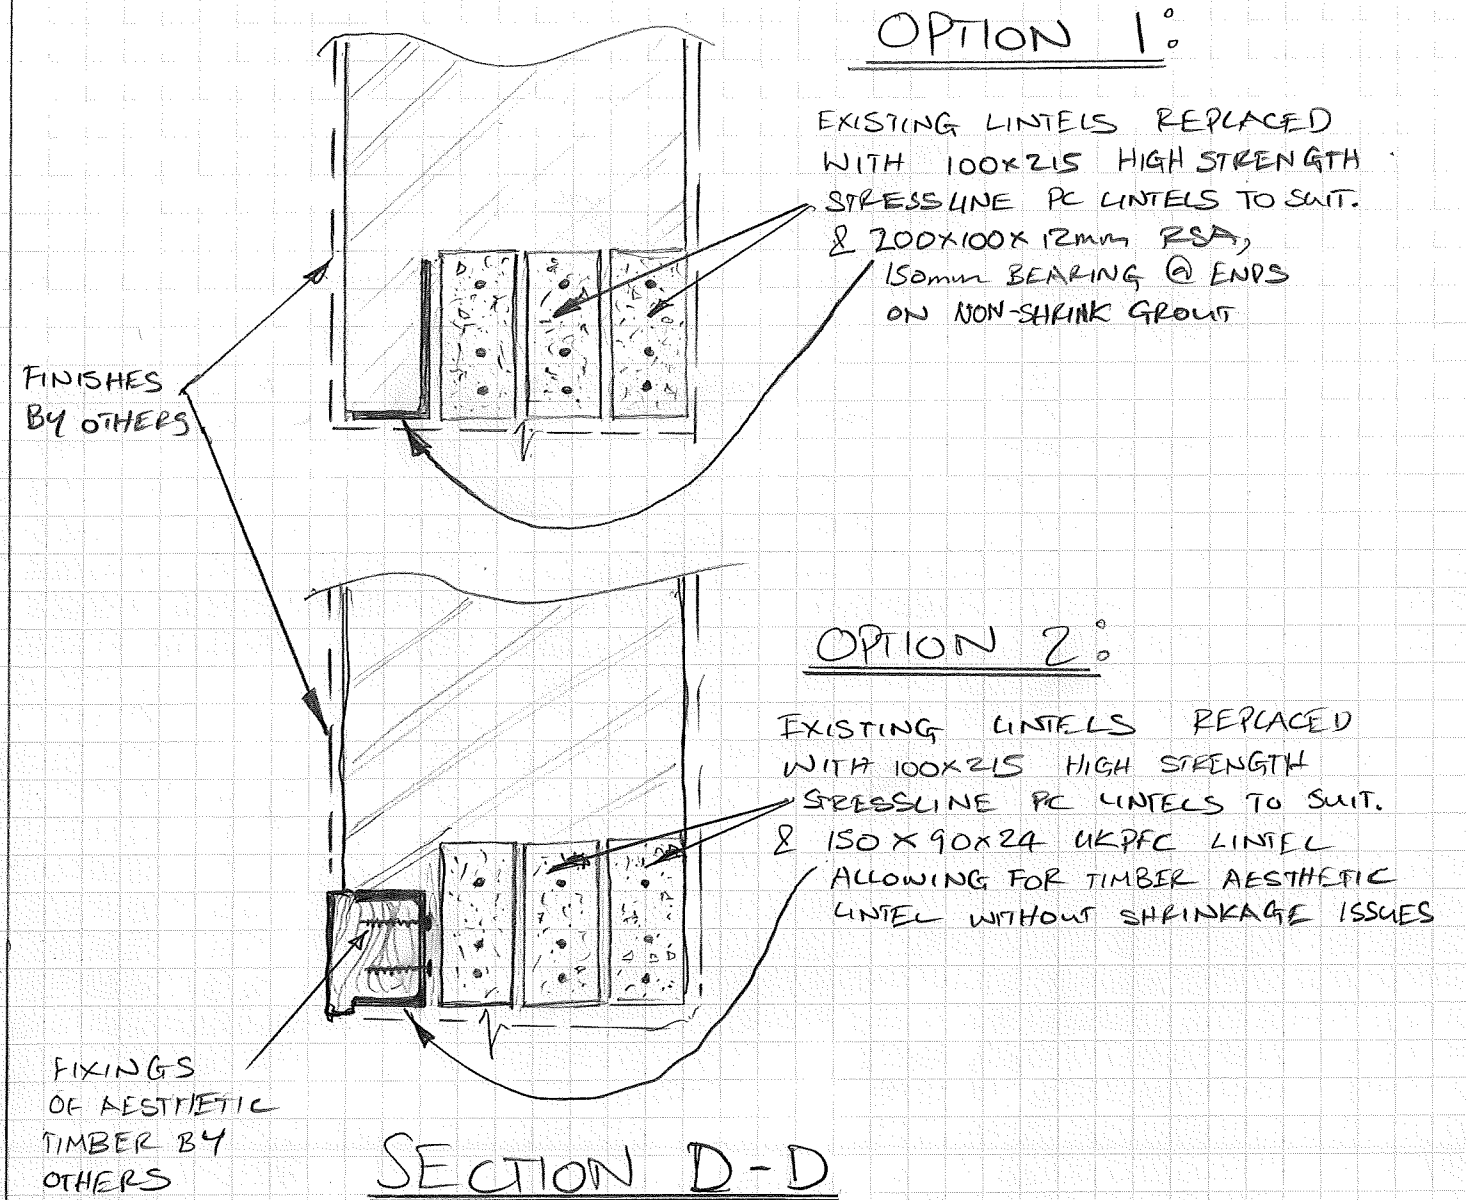 OPTION 1:
EXISTING LINTELS REPLACED
WITH 100x215 HIGH STRENGTH
STRESSLINE PC LINTELS TO SUIT.
& 200x100x12mm RSA,
150mm BEARING @ ENDS
ON NON-SHRINK GROUT
FINISHES
BY OTHERS
OPTION 2:
EXISTING LINTELS REPLACED
WITH 100x215 HIGH STRENGTH
STRESSLINE PC LINTELS TO SUIT.
& 150x90x24 UKPFC LINTEL
ALLOWING FOR TIMBER AESTHETIC
LINTEL WITHOUT SHRINKAGE ISSUES
FIXINGS
OF AESTHETIC
TIMBER BY
OTHERS
SECTION D-D